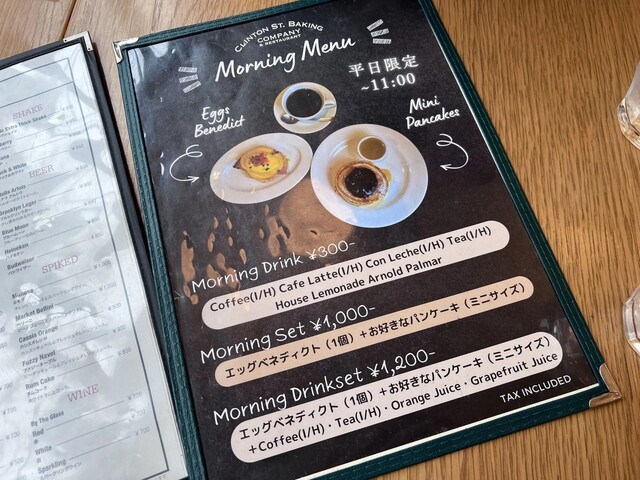 CLINTON ST. BAKING
COMPANY
& RESTAURANT
Morning Menu
平日限定
~11:00
Eggs
Benedict
Mini
Pancakes
Morning Drink ¥300-
Coffee(I/H) Cafe Latte(I/H) Con Leche(I/H) Tea(I/H)
House Lemonade Arnold Palmar
Morning Set ¥1,000-
エッグベネディクト（1個）+お好きなパンケーキ（ミニサイズ）
Morning Drinkset ¥1,200-
エッグベネディクト（1個）+お好きなパンケーキ（ミニサイズ）
+Coffee(I/H)・Tea(I/H)・Orange Juice・Grapefruit Juice
TAX INCLUDED
SHAKE
Extra Thick Shake
& White
BEER
Artois
Brooklyn Lager
Blue Moon
Heineken
Budweiser
SPIKED
Mimosa
Market Bellini
Cassis Orange
Fuzzy Navel
Rum Coke
WINE
By The Glass
Red
White
Sparkling